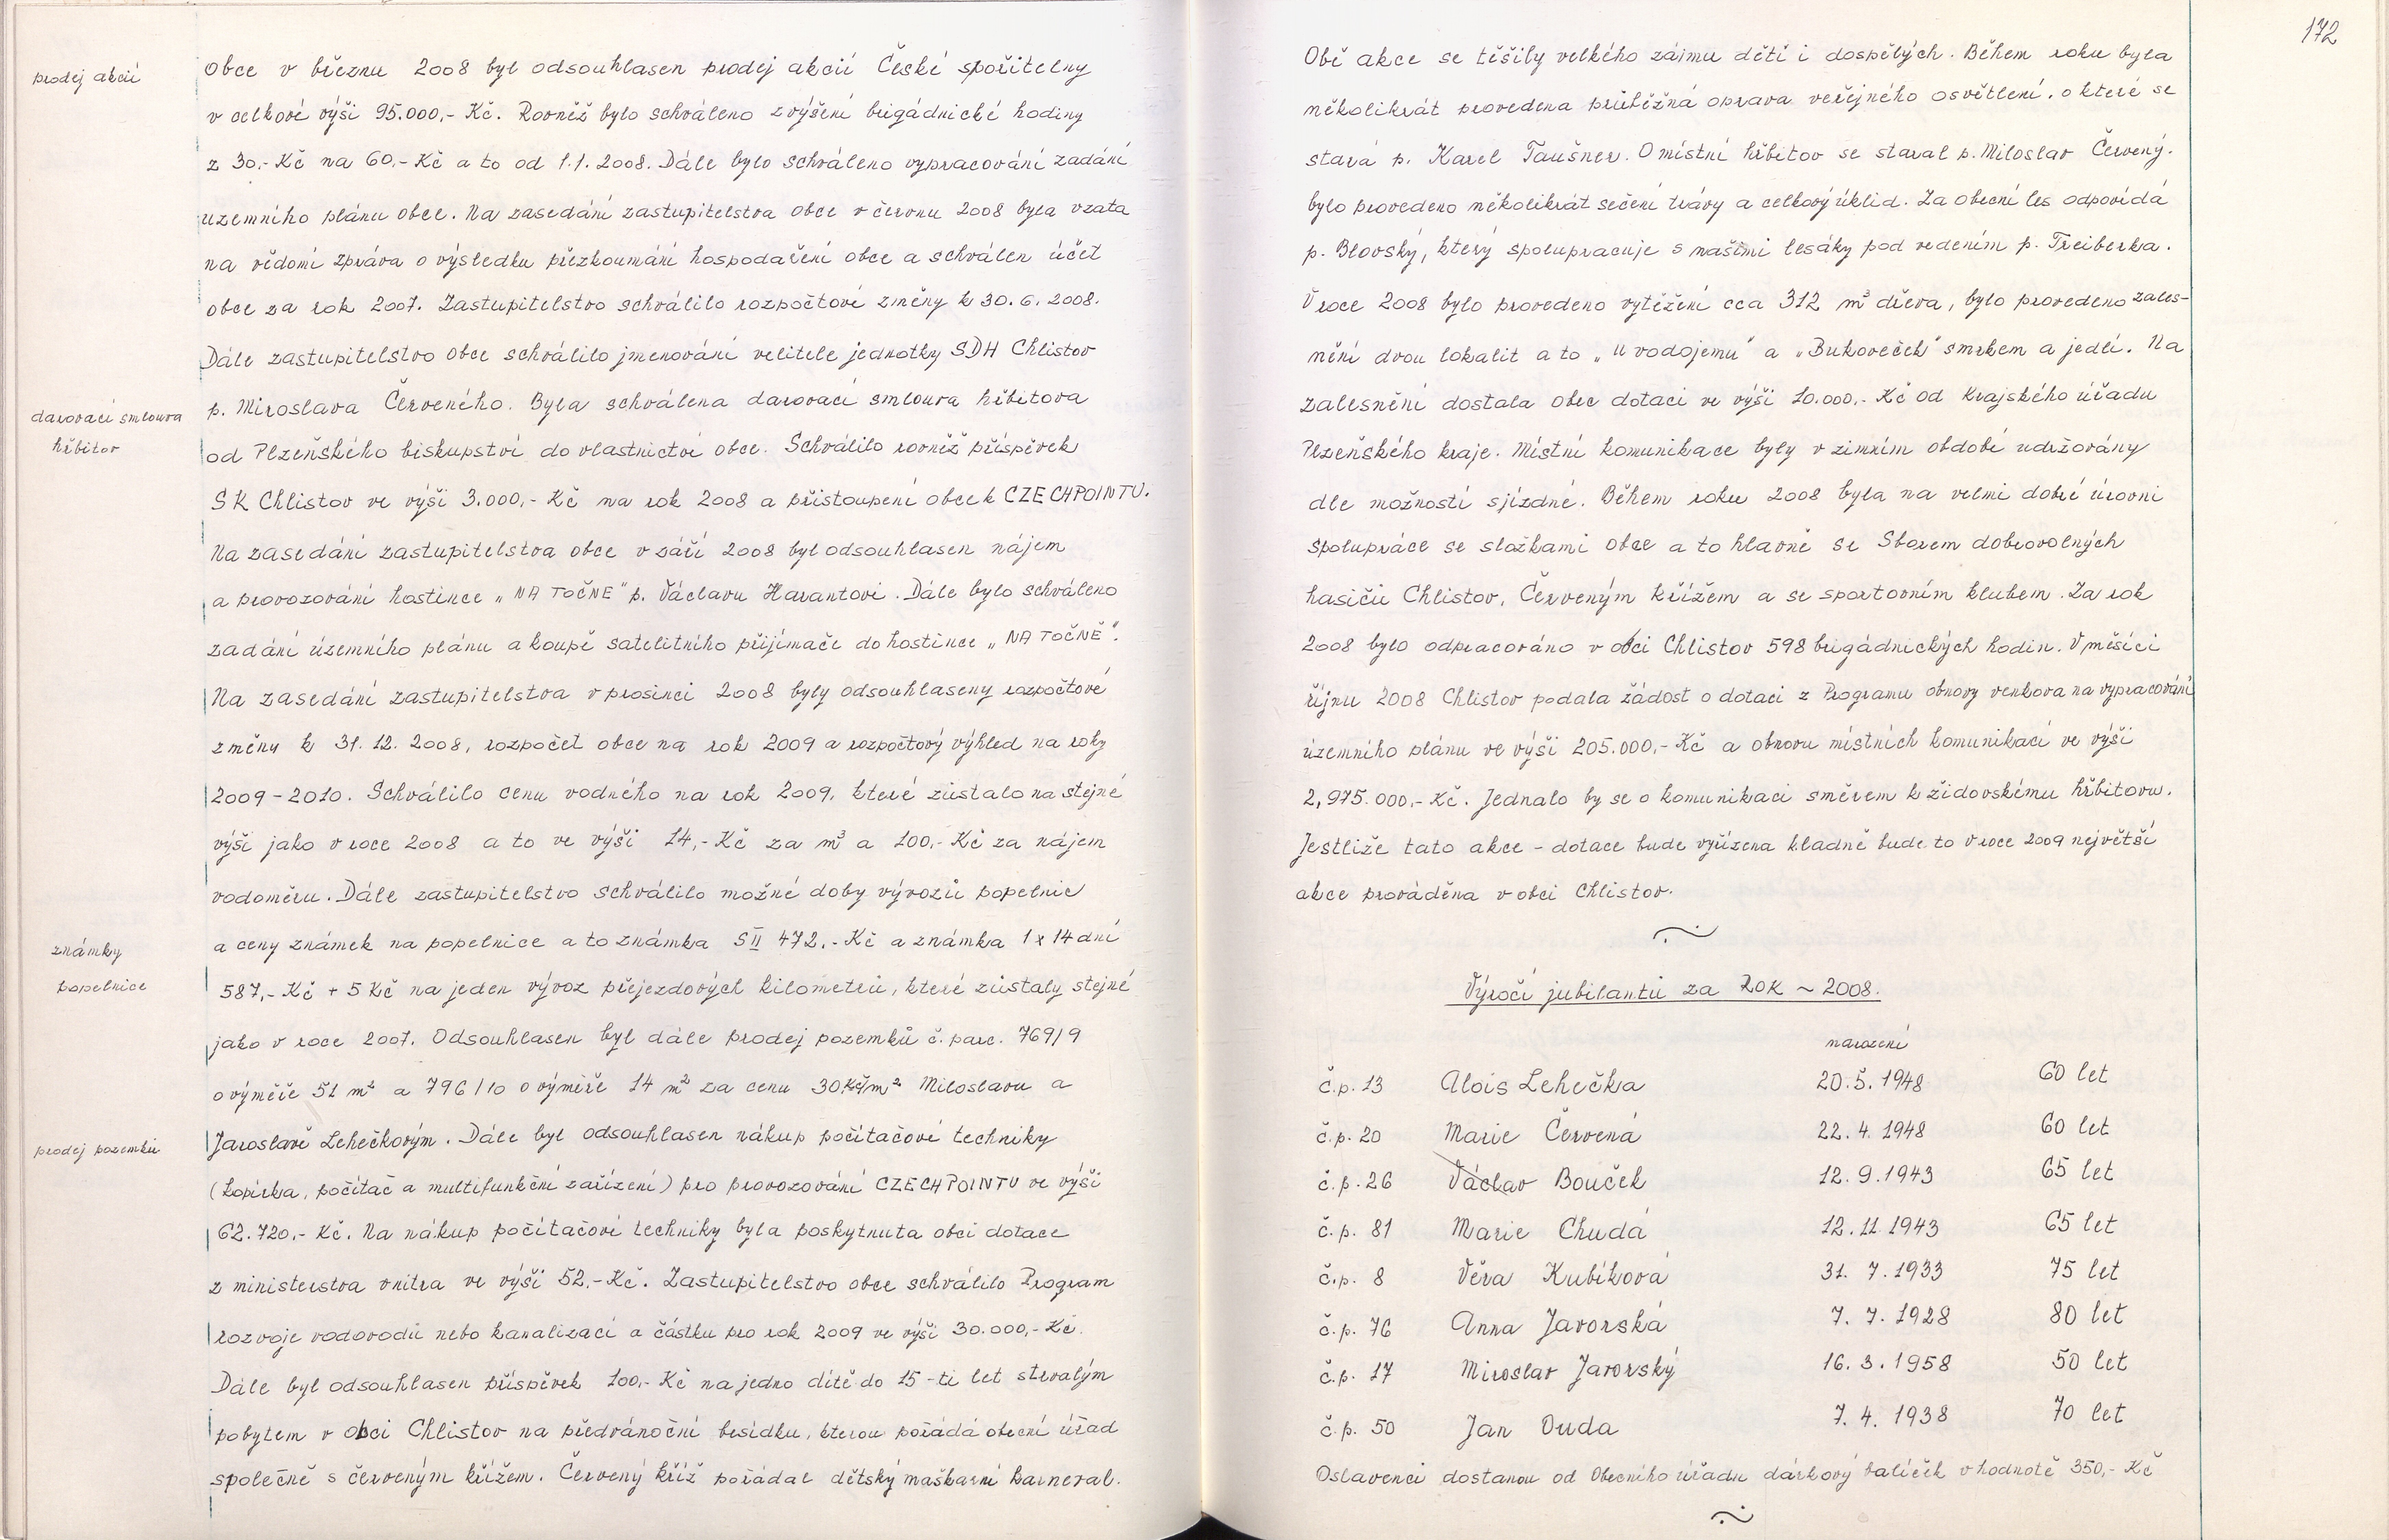 prodej akcií
obce v březnu 2008 byl odsouhlasen prodej akcií České spořitelny
v celkové výši 95.000,- Kč. Rovněž bylo schváleno zvýšení brigádnické hodiny
z 30,- Kč na 60,- Kč a to od 1.1. 2008. Dále bylo schváleno vypracování zadání
územního plánu obce. Na zasedání zastupitelstva obce v červnu 2008 byla vzata
na vědomí zpráva o výsledku přezkoumání hospodaření obce a schválen účet
obce za rok 2007. Zastupitelstvo schválilo rozpočtové změny k 30. 6. 2008.
Dále zastupitelstvo obce schválilo jmenování velitele jednotky SDH Chlistov
darovací smlouva
hřbitov
p. Miroslava Červeného. Byla schválena darovací smlouva hřbitova
od Plzeňského biskupství do vlastnictví obce. Schválilo rovněž příspěvek
SK Chlistov ve výši 3.000,- Kč na rok 2008 a přistoupení obce k CZECHPOINTU.
Na zasedání zastupitelstva obce v září 2008 byl odsouhlasen nájem
a provozování hostince „NA TOČNĚ" p. Václavu Harantovi. Dále bylo schváleno
zadání územního plánu a koupě satelitního přijímače do hostince „NA TOČNĚ".
Na zasedání zastupitelstva v prosinci 2008 byly odsouhlaseny rozpočtové
změny k 31. 12. 2008, rozpočet obce na rok 2009 a rozpočtový výhled na roky
2009 - 2010. Schválilo cenu vodného na rok 2009, které zůstalo na stejné
výši jako v roce 2008 a to ve výši 14,- Kč za m³ a 100,- Kč za nájem
vodoměru. Dále zastupitelstvo schválilo možné doby vývozů popelnic
známky
popelnice
a ceny známek na popelnice a to známka S II 472,- Kč a známka 1 x 14 dní
587,- Kč + 5 Kč na jeden vývoz přejezdových kilometrů, které zůstaly stejné
jako v roce 2007. Odsouhlasen byl dále prodej pozemků č. parc. 769/9
o výměře 51 m² a 796/10 o výměře 14 m² za cenu 30 Kč/m² Miloslavu a
prodej pozemků
Jaroslavě Lehečkovým. Dále byl odsouhlasen nákup počítačové techniky
(kopírka, počítač a multifunkční zařízení) pro provozování CZECHPOINTU ve výši
62.720,- Kč. Na nákup počítačové techniky byla poskytnuta obci dotace
z ministerstva vnitra ve výši 52,- Kč. Zastupitelstvo obce schválilo Program
rozvoje vodovodů nebo kanalizací a částku pro rok 2009 ve výši 30.000,- Kč.
Dále byl odsouhlasen příspěvek 100,- Kč na jedno dítě do 15 -ti let s trvalým
pobytem v obci Chlistov na předvánoční besídku, kterou pořádá obecní úřad
společně s červeným křížem. Červený kříž pořádal dětský maškarní karneval.
172
Obě akce se těšily velkého zájmu dětí i dospělých. Během roku byla
několikrát provedena průběžná oprava veřejného osvětlení, o které se
stará p. Karel Taušner. O místní hřbitov se staral p. Miloslav Červený.
bylo provedeno několikrát sečení trávy a celkový úklid. Za obecní les odpovídá
p. Blovský, který spolupracuje s našimi lesáky pod vedením p. Treiberka.
V roce 2008 bylo provedeno vytěžení cca 312 m³ dřeva, bylo provedeno zales-
nění dvou lokalit a to „u vodojemu" a „Bukoveček" smrkem a jedlí. Na
zalesnění dostala obec dotaci ve výši 10.000,- Kč od Krajského úřadu
Plzeňského kraje. Místní komunikace byly v zimním období udržovány
dle možností sjízdné. Během roku 2008 byla na velmi dobré úrovni
spolupráce se složkami obce a to hlavně se Sborem dobrovolných
hasičů Chlistov, Červeným křížem a se sportovním klubem. Za rok
2008 bylo odpracováno v obci Chlistov 598 brigádnických hodin. V měsíci
říjnu 2008 Chlistov podala žádost o dotaci z Programu obnovy venkova na vypracování
územního plánu ve výši 205.000,- Kč a obnovu místních komunikací ve výši
2,975.000,- Kč. Jednalo by se o komunikaci směrem k židovskému hřbitovu.
Jestliže tato akce - dotace bude vyřízena kladně bude to v roce 2009 největší
akce prováděna v obci Chlistov.
Výročí jubilantů za ROK ~ 2008.
narození
č.p. 13 Alois Lehečka 20. 5. 1948 60 let
č.p. 20 Marie Červená 22. 4. 1948 60 let
č.p. 26 Václav Bouček 12. 9. 1943 65 let
č.p. 81 Marie Chudá 12. 11. 1943 65 let
č.p. 8 Věra Kubíková 31. 7. 1933 75 let
č.p. 76 Anna Javorská 7. 7. 1928 80 let
č.p. 17 Miroslav Javorský 16. 3. 1958 50 let
č.p. 50 Jan Duda 7. 4. 1938 70 let
Oslavenci dostanou od Obecního úřadu dárkový balíček v hodnotě 350,- Kč